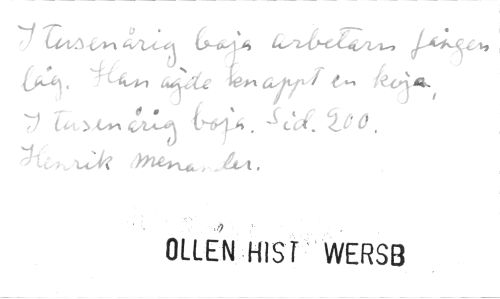 I tusenårig boja arbetarn fången
låg. Han ägde knappt en koja,
I tusenårig boja. Sid. 200.
Henrik Menander.
OLLÉN HIST WERSB